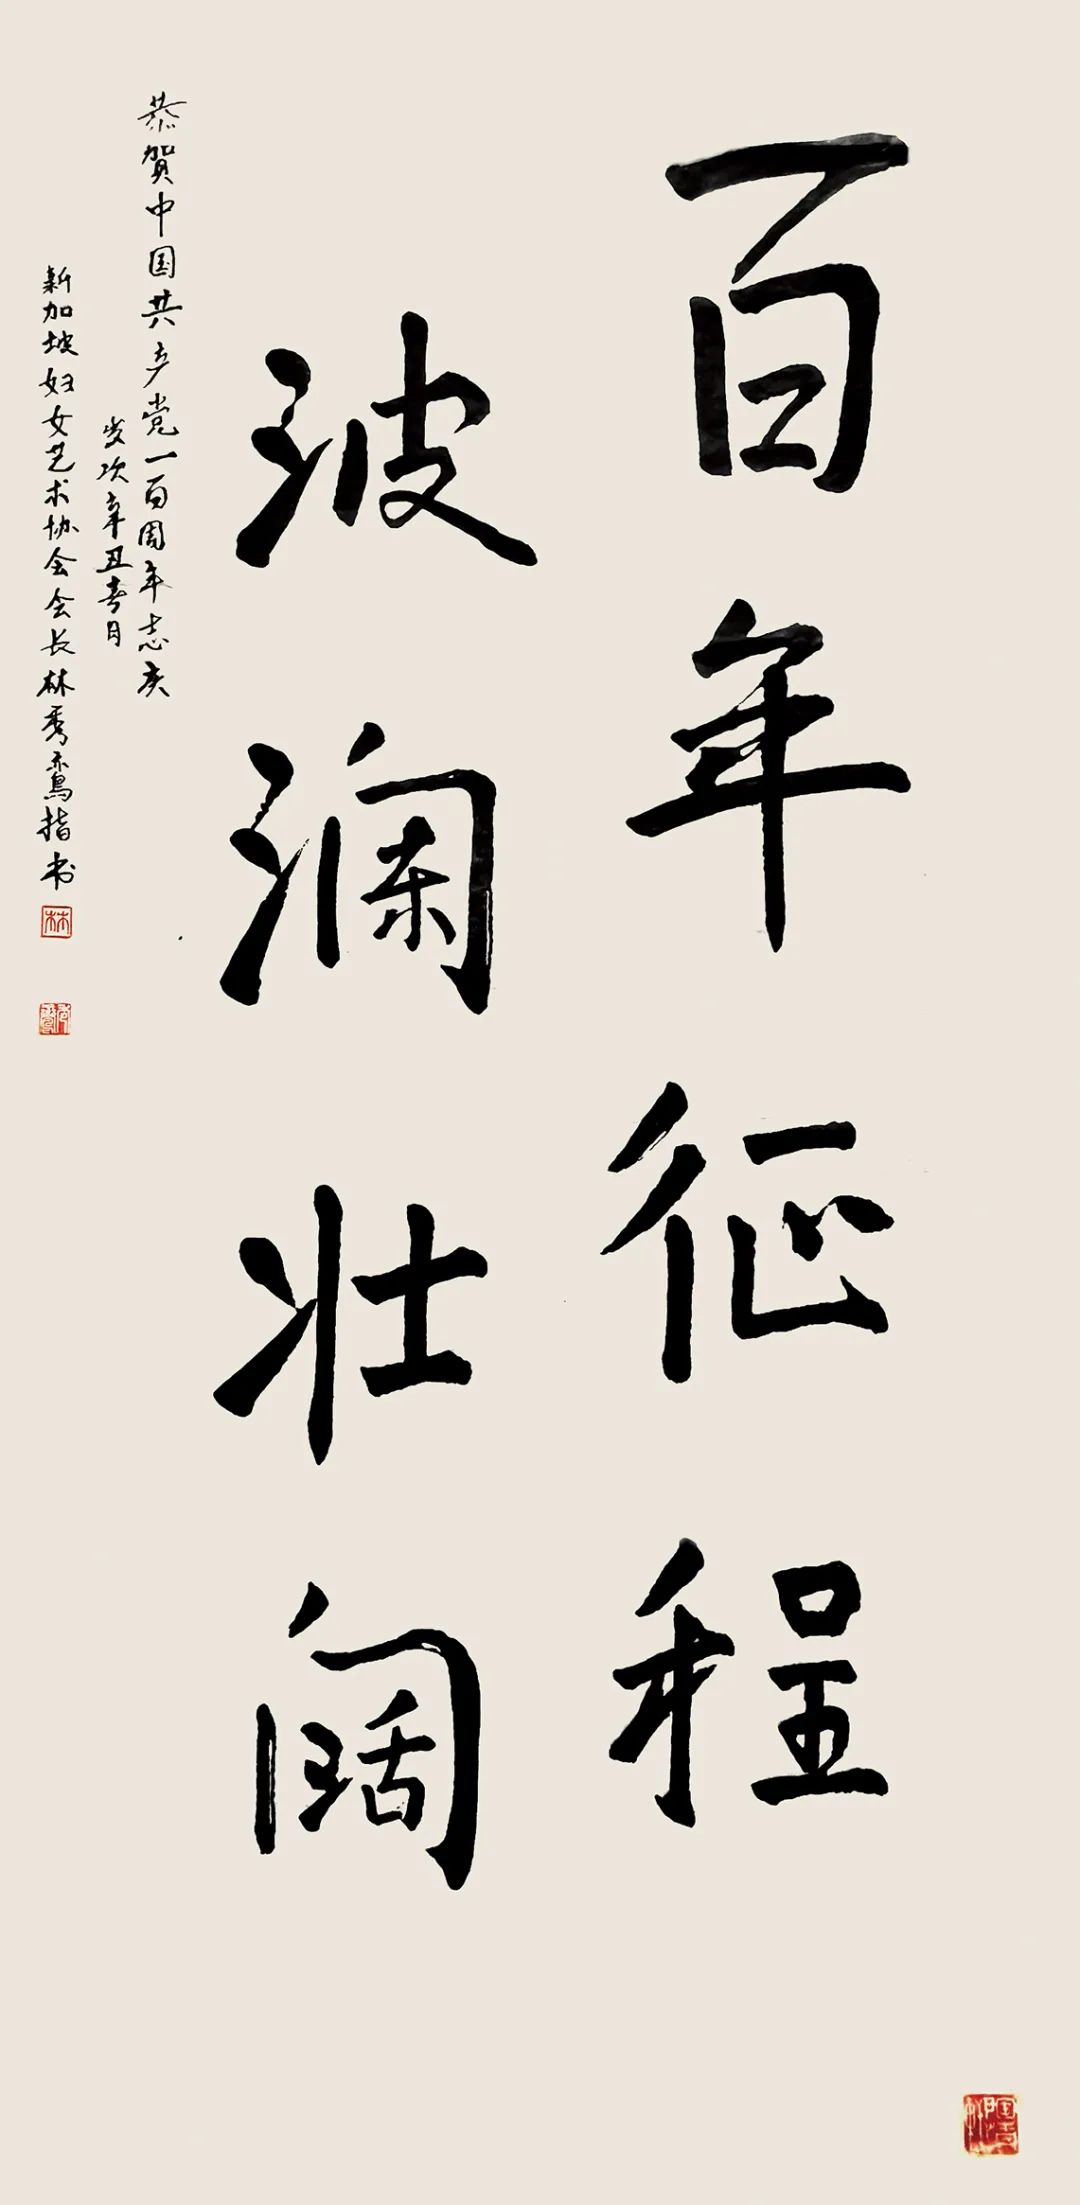 百年征程
波澜壮阔
恭贺中国共产党一百周年志庆
岁次辛丑春月
新加坡妇女艺术协会会长林秀鸾指书
林